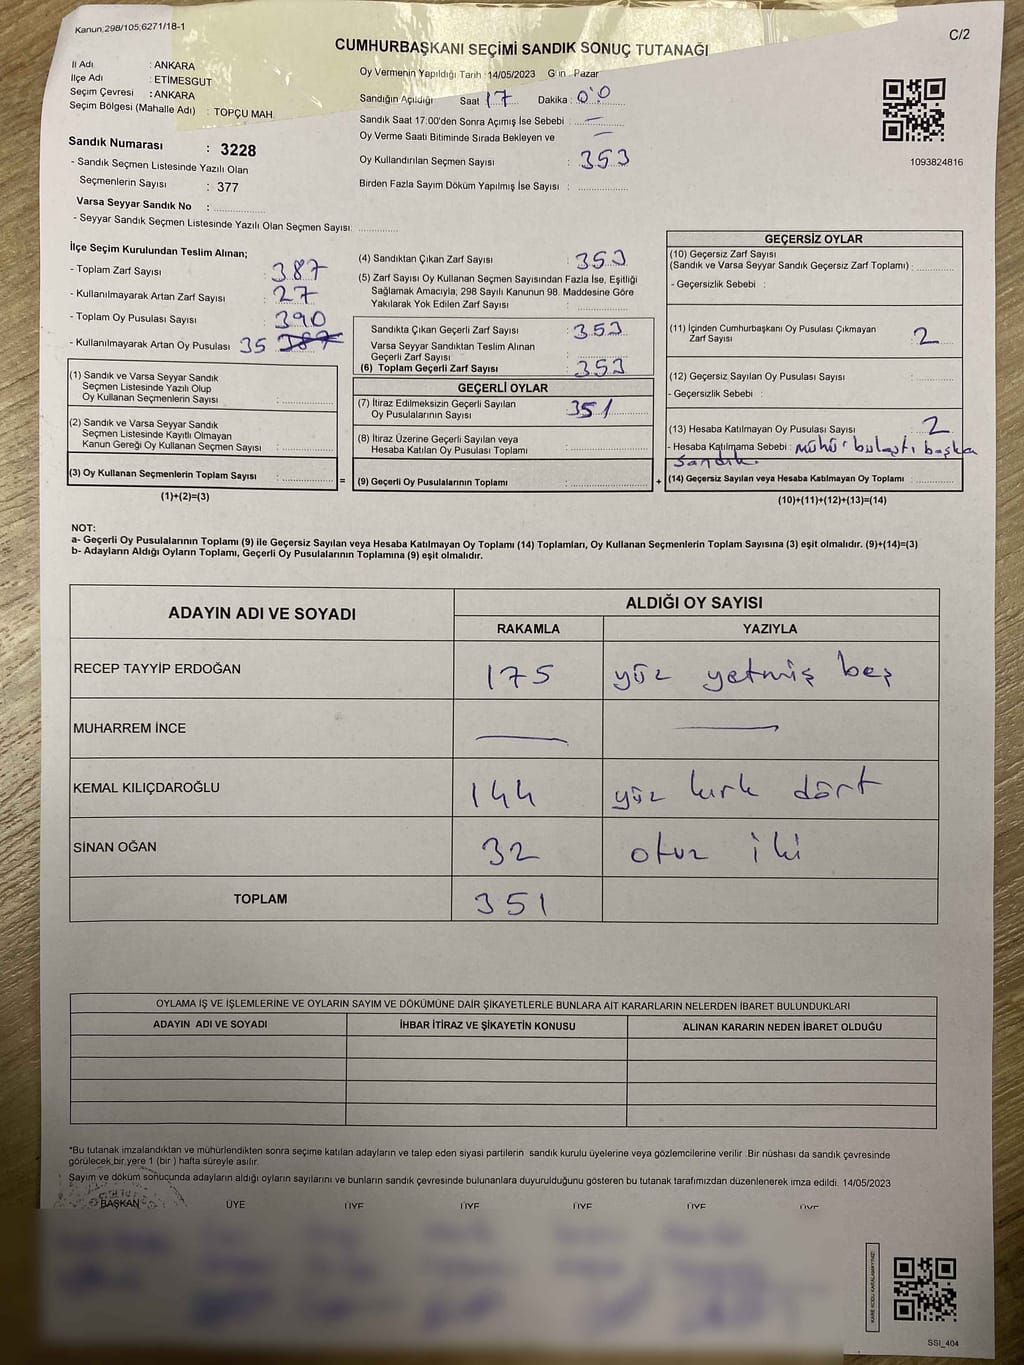 Kanun;298/105,6271/18-1
C/2
CUMHURBAŞKANI SEÇİMİ SANDIK SONUÇ TUTANAĞI
İl Adı : ANKARA
İlçe Adı : ETİMESGUT
Seçim Çevresi : ANKARA
Seçim Bölgesi (Mahalle Adı) : TOPÇU MAH.
Sandık Numarası : 3228
- Sandık Seçmen Listesinde Yazılı Olan
Seçmenlerin Sayısı : 377
Varsa Seyyar Sandık No :
- Seyyar Sandık Seçmen Listesinde Yazılı Olan Seçmen Sayısı:
Oy Vermenin Yapıldığı Tarih :14/05/2023 Gün : Pazar
Sandığın Açıldığı Saat : 17 Dakika : 00
Sandık Saat 17:00'den Sonra Açımış İse Sebebi : —
Oy Verme Saati Bitiminde Sırada Bekleyen ve —
Oy Kullandırılan Seçmen Sayısı : 353
Birden Fazla Sayım Döküm Yapılmış İse Sayısı :
1093824816
İlçe Seçim Kurulundan Teslim Alınan;
- Toplam Zarf Sayısı : 387
- Kullanılmayarak Artan Zarf Sayısı : 27
- Toplam Oy Pusulası Sayısı : 390
- Kullanılmayarak Artan Oy Pusulası : 35 387
(1) Sandık ve Varsa Seyyar Sandık
Seçmen Listesinde Yazılı Olup
Oy Kullanan Seçmenlerin Sayısı :
(2) Sandık ve Varsa Seyyar Sandık
Seçmen Listesinde Kayıtlı Olmayan
Kanun Gereği Oy Kullanan Seçmen Sayısı :
(3) Oy Kullanan Seçmenlerin Toplam Sayısı :
(1)+(2)=(3)
(4) Sandıktan Çıkan Zarf Sayısı : 353
(5) Zarf Sayısı Oy Kullanan Seçmen Sayısından Fazla İse, Eşitliği
Sağlamak Amacıyla; 298 Sayılı Kanunun 98. Maddesine Göre
Yakılarak Yok Edilen Zarf Sayısı :
Sandıkta Çıkan Geçerli Zarf Sayısı : 353
Varsa Seyyar Sandıktan Teslim Alınan
Geçerli Zarf Sayısı :
(6) Toplam Geçerli Zarf Sayısı : 353
GEÇERLİ OYLAR
(7) İtiraz Edilmeksizin Geçerli Sayılan
Oy Pusulalarının Sayısı : 351
(8) İtiraz Üzerine Geçerli Sayılan veya
Hesaba Katılan Oy Pusulası Toplamı :
= (9) Geçerli Oy Pusulalarının Toplamı :
GEÇERSİZ OYLAR
(10) Geçersiz Zarf Sayısı
(Sandık ve Varsa Seyyar Sandık Geçersiz Zarf Toplamı) :
- Geçersizlik Sebebi :
(11) İçinden Cumhurbaşkanı Oy Pusulası Çıkmayan
Zarf Sayısı : 2
(12) Geçersiz Sayılan Oy Pusulası Sayısı :
- Geçersizlik Sebebi :
(13) Hesaba Katılmayan Oy Pusulası Sayısı : 2
- Hesaba Katılmama Sebebi : mühür bulaştı başka
sandık.
+ (14) Geçersiz Sayılan veya Hesaba Katılmayan Oy Toplamı :
(10)+(11)+(12)+(13)=(14)
NOT:
a- Geçerli Oy Pusulalarının Toplamı (9) ile Geçersiz Sayılan veya Hesaba Katılmayan Oy Toplamı (14) Toplamları, Oy Kullanan Seçmenlerin Toplam Sayısına (3) eşit olmalıdır. (9)+(14)=(3)
b- Adayların Aldığı Oyların Toplamı, Geçerli Oy Pusulalarının Toplamına (9) eşit olmalıdır.
ADAYIN ADI VE SOYADI
ALDIĞI OY SAYISI
RAKAMLA YAZIYLA
RECEP TAYYİP ERDOĞAN 175 yüz yetmiş beş
MUHARREM İNCE — —
KEMAL KILIÇDAROĞLU 144 yüz kırk dört
SİNAN OĞAN 32 otuz iki
TOPLAM 351
OYLAMA İŞ VE İŞLEMLERİNE VE OYLARIN SAYIM VE DÖKÜMÜNE DAİR ŞİKAYETLERLE BUNLARA AİT KARARLARIN NELERDEN İBARET BULUNDUKLARI
ADAYIN ADI VE SOYADI İHBAR İTİRAZ VE ŞİKAYETİN KONUSU ALINAN KARARIN NEDEN İBARET OLDUĞU
*Bu tutanak imzalandıktan ve mühürlendikten sonra seçime katılan adayların ve talep eden siyasi partilerin sandık kurulu üyelerine veya gözlemcilerine verilir .Bir nüshası da sandık çevresinde
görülecek bir yere 1 (bir ) hafta süreyle asılır.
Sayım ve döküm sonucunda adayların aldığı oyların sayılarını ve bunların sandık çevresinde bulunanlara duyurulduğunu gösteren bu tutanak tarafımızdan düzenlenerek imza edildi. 14/05/2023
BAŞKAN ÜYE ÜYE ÜYE ÜYE ÜYE ÜYE
KARE KODU KARALAMAYINIZ!
SSI_404